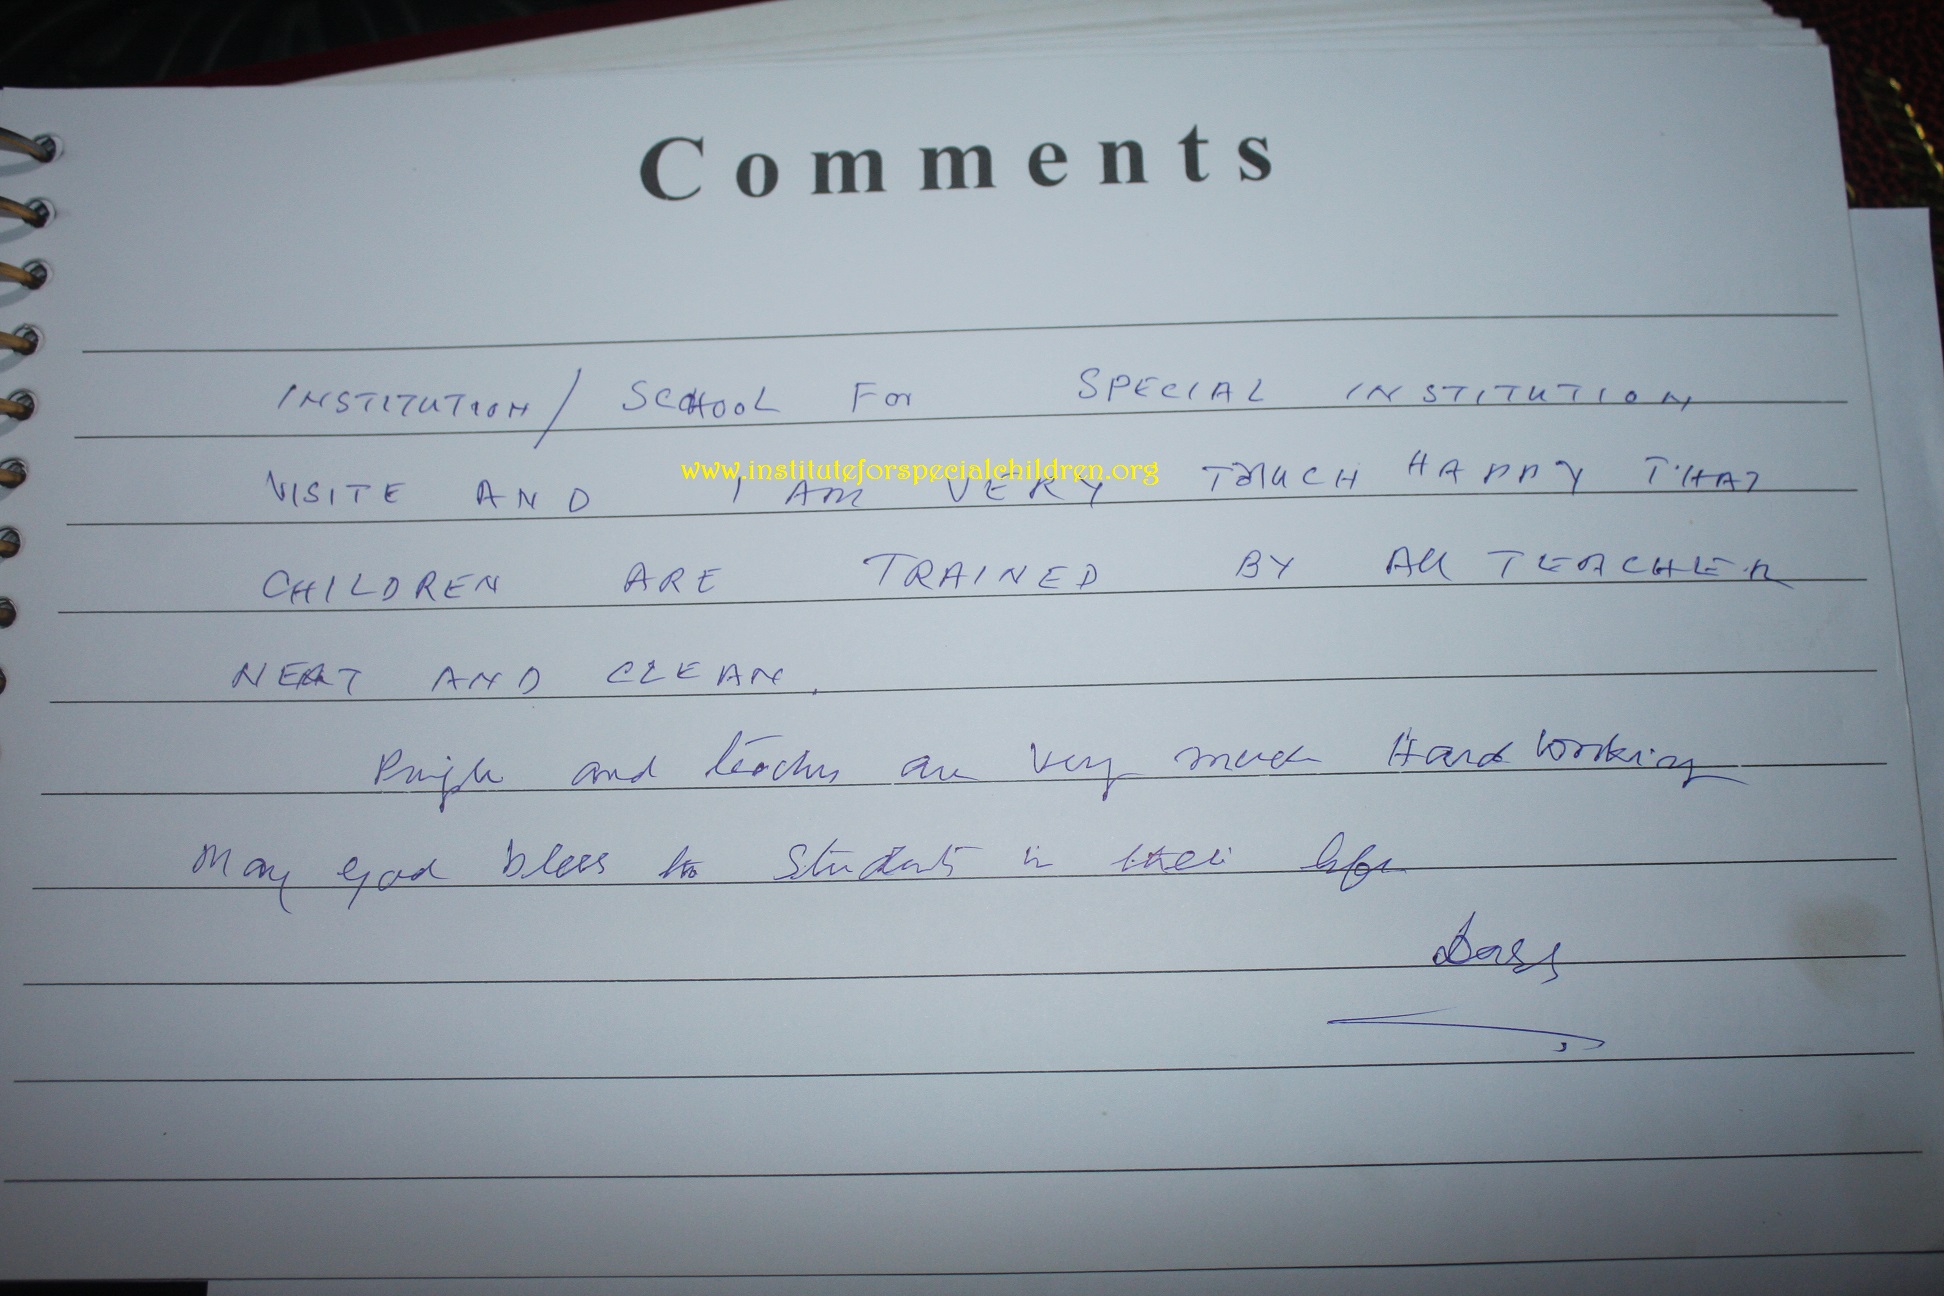 Comments
INSTITUTION / SCHOOL For SPECIAL INSTITUTION
www.instituteforspecialchildren.org
VISITE AND I AM VERY MUCH HAPPY THAT
CHILDREN ARE TRAINED BY All TEACHER
NEAT AND CLEAN.
and teachers are Very much Hard Working
May god bless to Students in their life
Dass